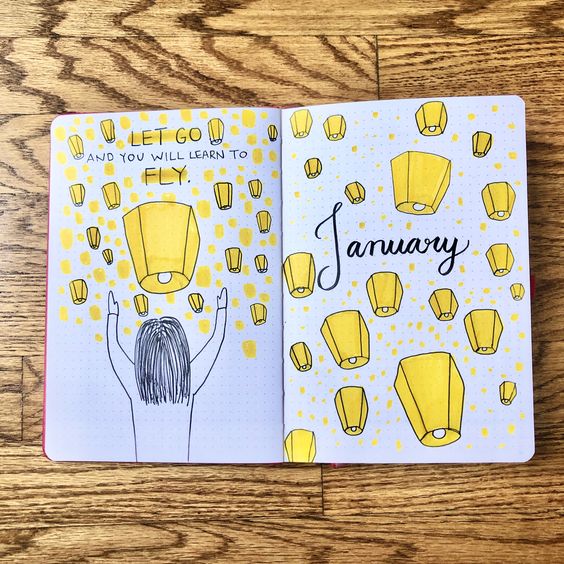 LET GO
AND YOU WILL LEARN TO
FLY.
January